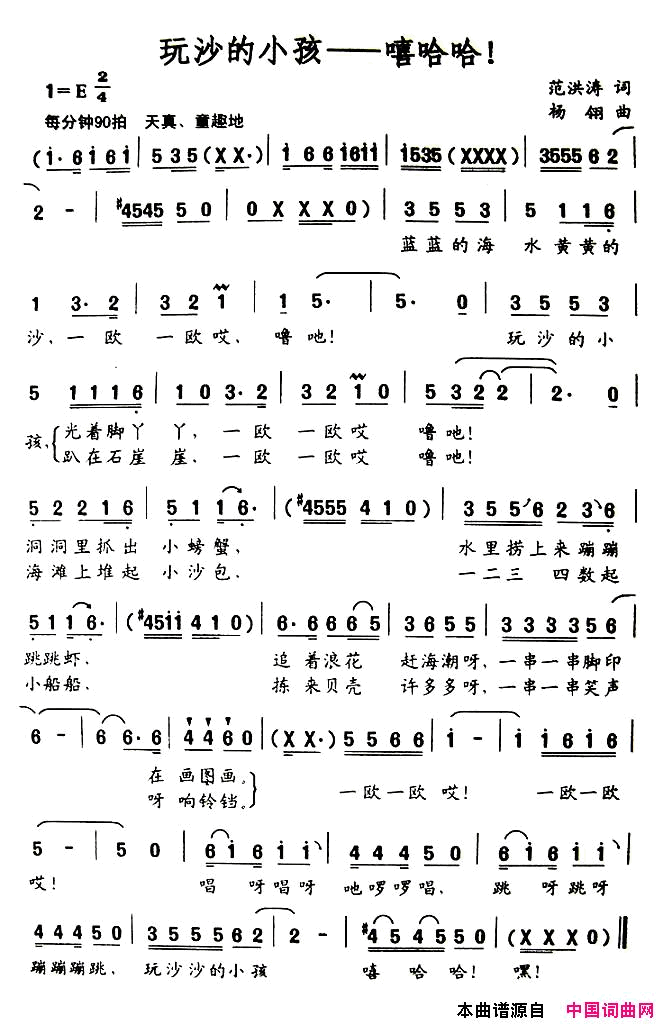 玩沙的小孩——嘻哈哈！
1=E 2/4
范洪涛 词
每分钟90拍 天真、童趣地
杨翎 曲
(i· 6 i 6 i | 5 3 5 (X X·) | i 6 6 i6ii | i535 (XXXX) | 3555 6 2 |
2 - | #4545 5 0 | 0 X X X 0) | 3 5 5 3 | 5 1 1 6 |
蓝蓝的海 水黄黄的
1 3· 2 | 3 2 1 | 1 5· | 5· 0 | 3 5 5 3 |
沙，一欧 一欧哎，噜吔！ 玩沙的小
5 1 1 1 6 | 1 0 3· 2 | 3 2 1 0 | 5 3 2 2 | 2· 0 |
孩，{光着脚丫 丫，一欧 一欧哎 噜吔！
趴在石崖 崖，一欧 一欧哎 噜吔！
5 2 2 1 6 | 5 1 1 6· | (#4555 4 1 0) | 3 5 5 6 | 2 3 3 6 |
洞洞里抓出 小螃蟹， 水里捞上来蹦蹦
海滩上堆起 小沙包， 一二三 四数起
5 1 1 6· | (#45ii 4 1 0) | 6· 6 6 6 5 | 3 6 5 5 | 3 3 3 3 5 6 |
跳跳虾， 追着浪花 赶海潮呀，一串一串脚印
小船船， 拣来贝壳 许多多呀，一串一串笑声
6 - | 6 6· | 4 4 6 0 | (X X·) | 5 5 6 6 | i - | i i 6 i 6 |
在画图画。 一欧一欧 哎！ 一欧一欧
呀响铃铛。}
5 - | 5 0 | 6 i 6 i i | 5 i 6 i | 6 i 6 i i |
哎！ 唱呀唱呀 吔啰啰唱，跳呀跳呀
4 4 4 5 0 | 3 5 5 5 6 2 | 2 - | #4 5 4 5 5 0 | (X X X 0) ‖
蹦蹦蹦跳，玩沙沙的小孩 嘻哈哈！嘿！
本曲谱源自 中国词曲网